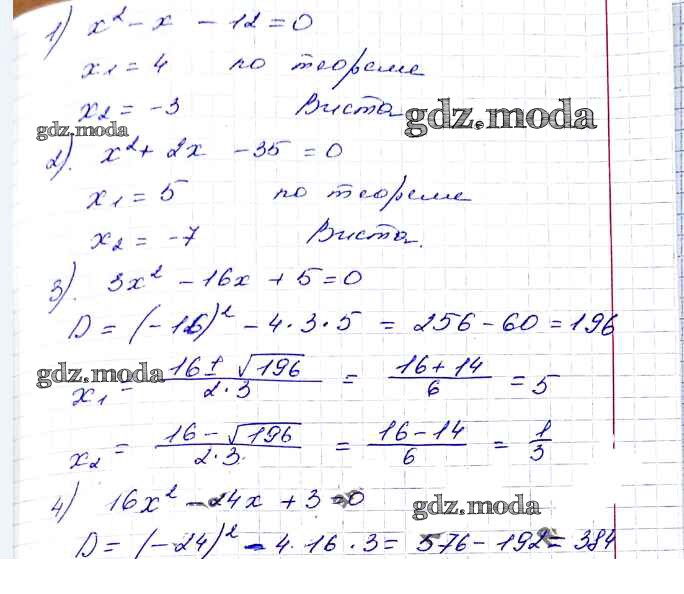 1) x² - x - 12 = 0
x₁ = 4 по теореме
x₂ = -3 Виета
gdz.moda
gdz.moda
2). x² + 2x - 35 = 0
x₁ = 5 по теореме
x₂ = -7 Виета.
3). 3x² - 16x + 5 = 0
D = (-16)² - 4·3·5 = 256 - 60 = 196
gdz.moda
x₁ = (16 + √196)/(2·3) = (16 + 14)/6 = 5
x₂ = (16 - √196)/(2·3) = (16 - 14)/6 = 1/3
4) 16x² - 24x + 3 = 0
gdz.moda
D = (-24)² - 4·16·3 = 576 - 192 = 384